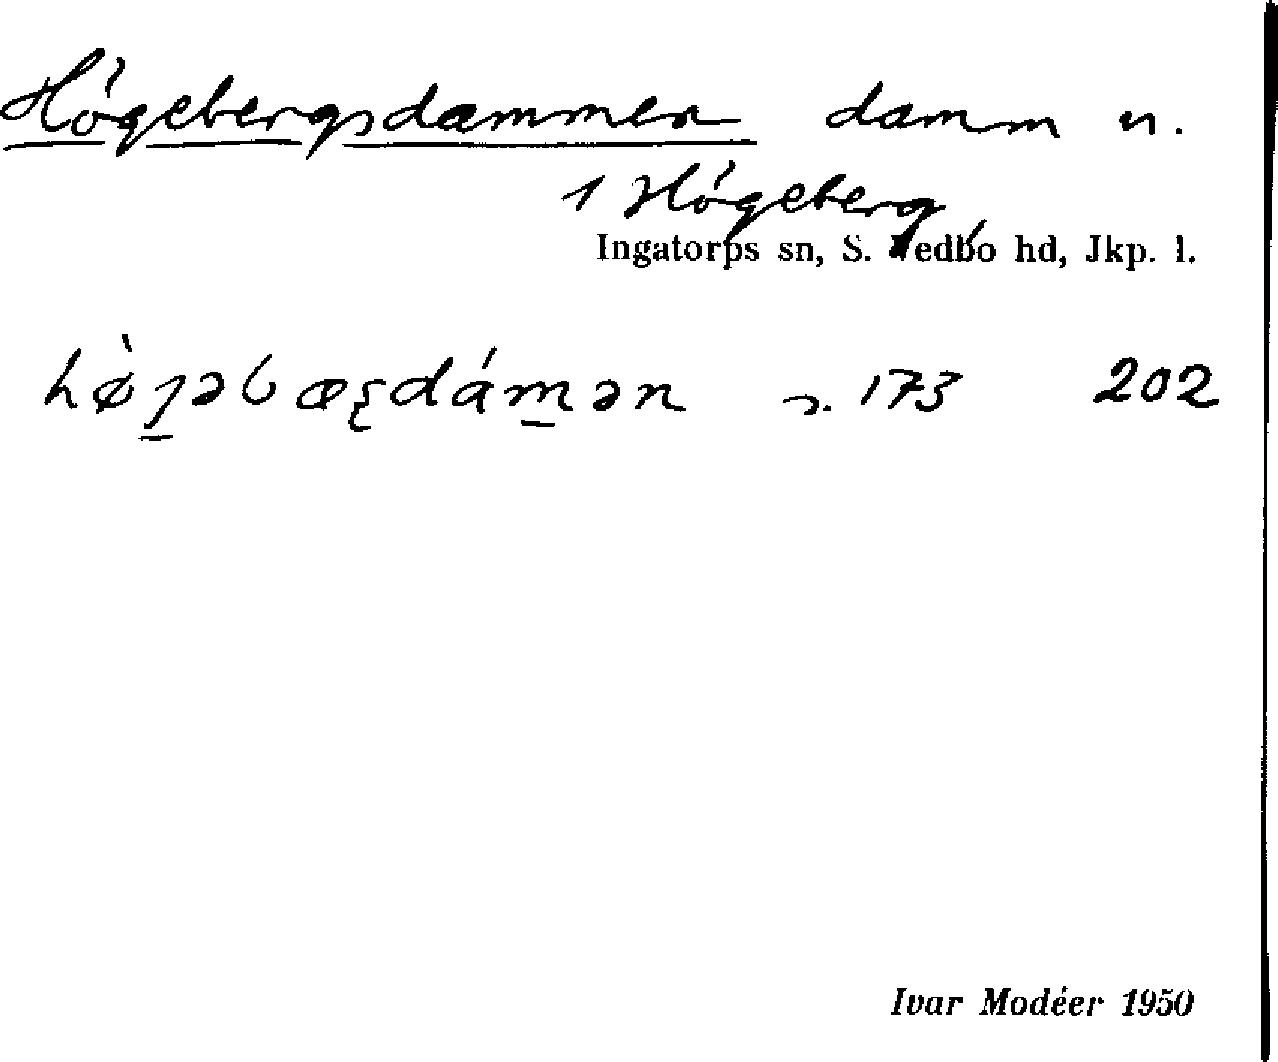 Högebergsdammen damm n.
1 Högeberg,
Ingatorps sn, S. Vedbo hd, Jkp. l.
173 202
Ivar Modéer 1950